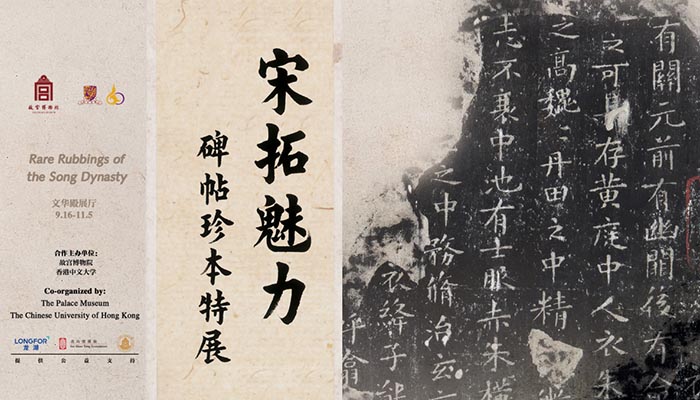 故宫博物院
Rare Rubbings of
the Song Dynasty
文华殿展厅
9.16-11.5
合作主办单位：
故宫博物院
香港中文大学
Co-organized by:
The Palace Museum
The Chinese University of Hong Kong
LONGFOR
龙湖
提供公益支持
宋拓魅力
碑帖珍本特展
有關元前有幽闕後有
之可長存黃庭中人衣朱
之高巍〻丹田之中精
志不衰中池有士服赤朱橫
之中務脩治玄
衣絳子能
呼翕